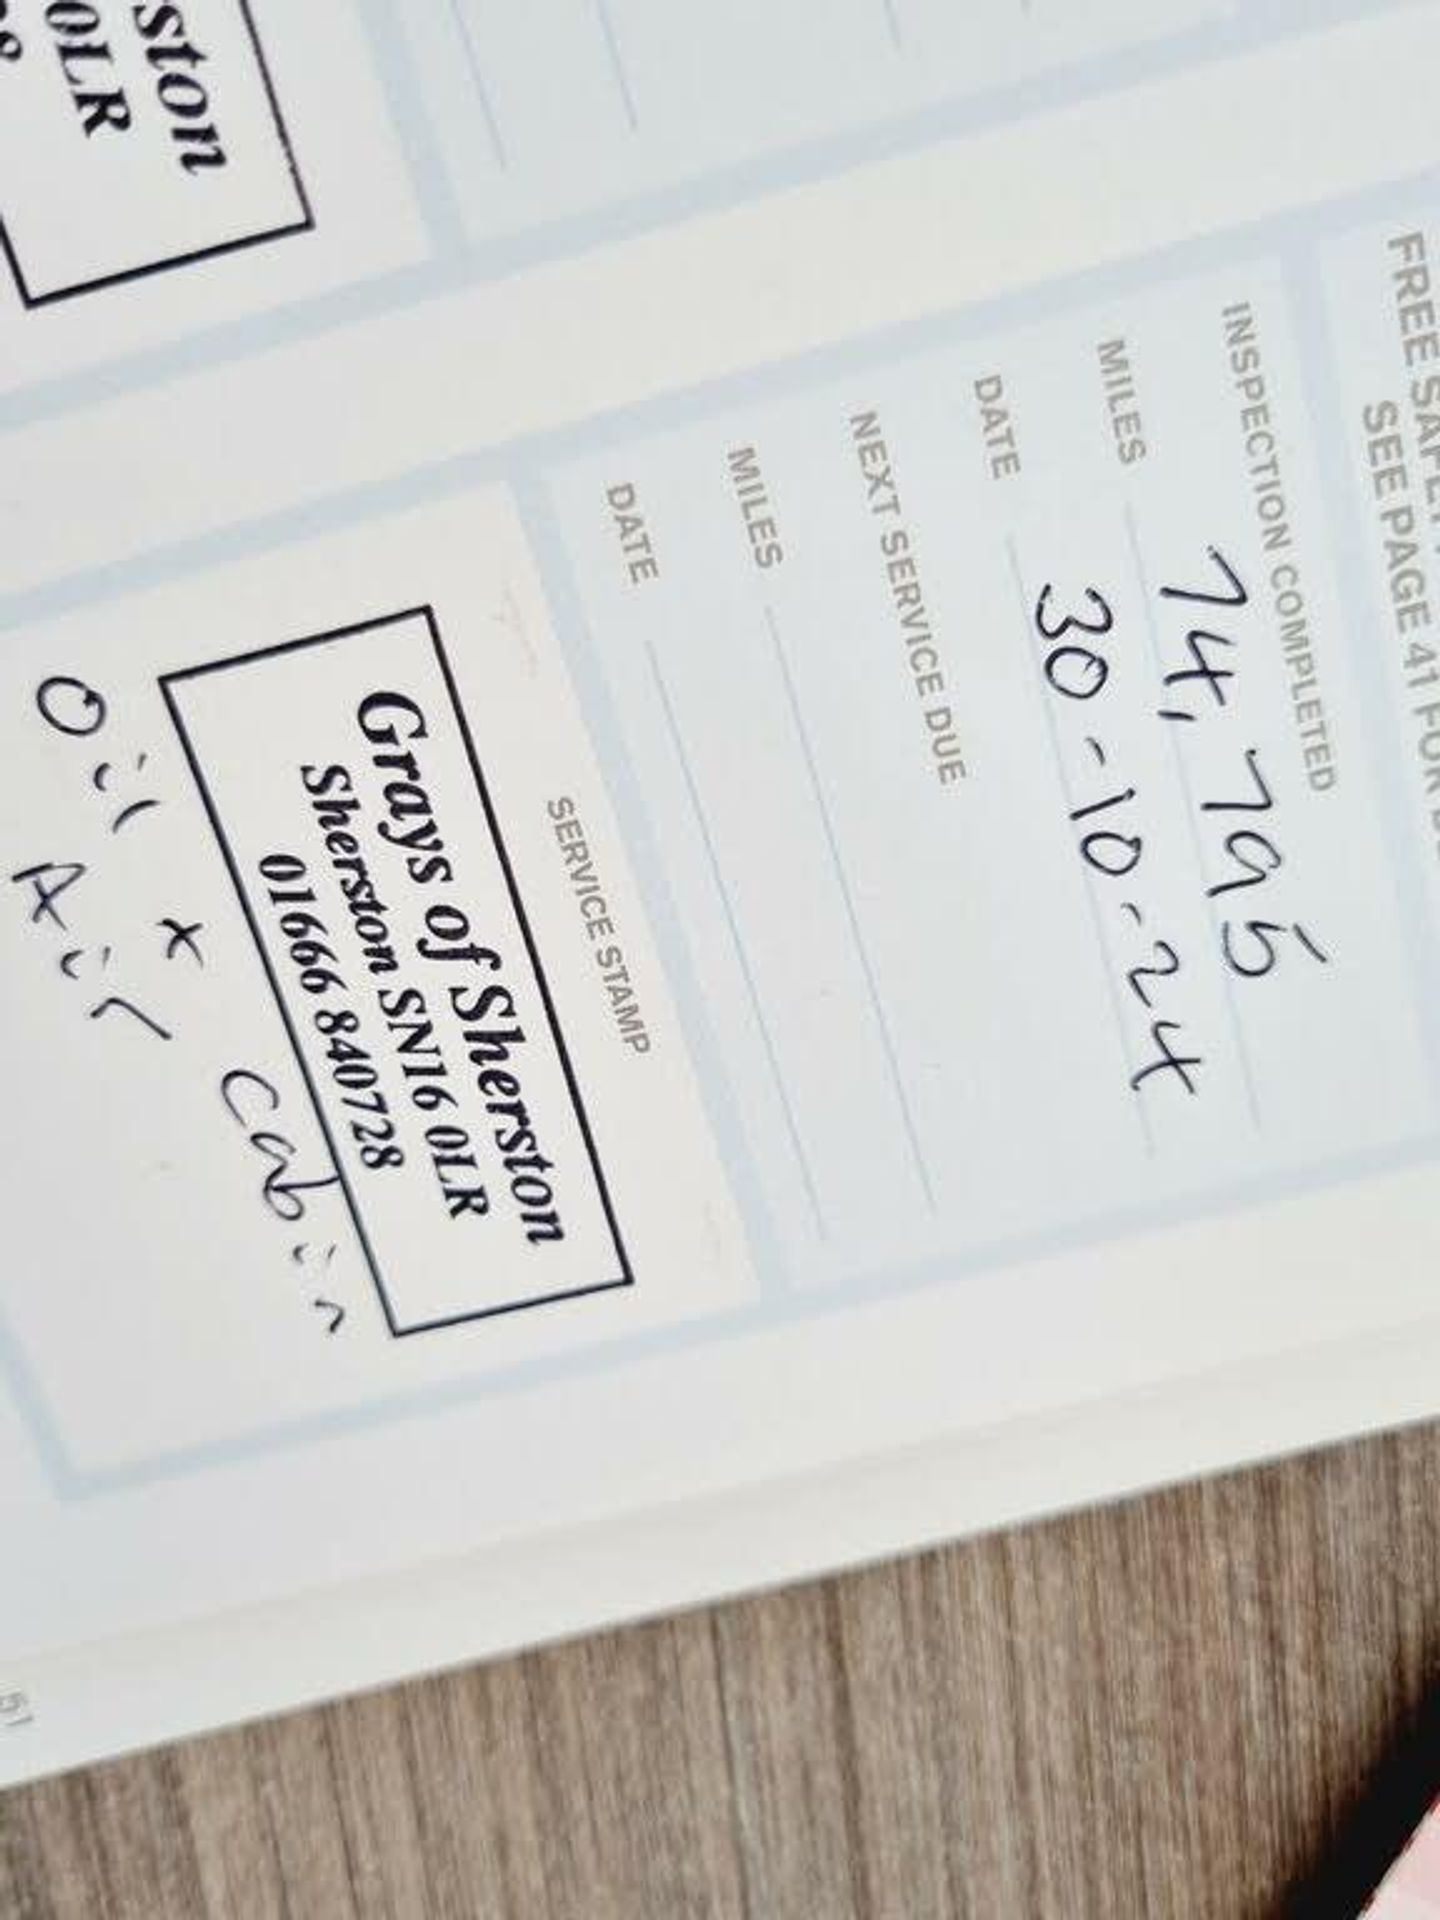 ston
0LR
FREE SAFETY
SEE PAGE 41 FOR
INSPECTION COMPLETED
MILES 74,795
DATE 30-10-24
NEXT SERVICE DUE
MILES
DATE
SERVICE STAMP
Grays of Sherston
Sherston SN16 0LR
01666 840728
Oil x Cabin
Air
51